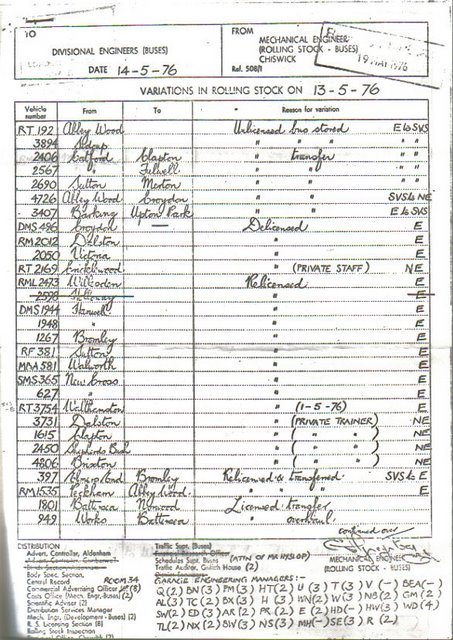 TO
DIVISIONAL ENGINEERS (BUSES)
DATE 14-5-76
FROM MECHANICAL ENGINEER
(ROLLING STOCK - BUSES)
CHISWICK
Ref. 508/1
19 MAY 1976
VARIATIONS IN ROLLING STOCK ON 13-5-76
Vehicle number From To Reason for variation
RT 192 Abbey Wood Unlicensed bus stored E to SVS
3894 Sidcup " " " " "
2406 Catford Clapton " transfer " "
2567 " Fulwell " " " "
2690 Sutton Merton " " " "
4726 Abbey Wood Croydon " " SVS to NE
3407 Barking Upton Park " " E to SVS
DMS 496 Croydon — Delicensed E
RM 2012 Dalston " E
2050 Victoria " E
RT 2169 Cricklewood " (PRIVATE STAFF) NE
RML 2473 Willesden Relicensed E
2598 Holloway " E
DMS 1944 Hanwell " E
1948 " " E
1267 Bromley " E
RF 381 Sutton " E
MBA 581 Walworth " E
SMS 365 New Cross " E
627 " " E
RT 3754 Walthamstow " (1-5-76) E
3731 Dalston " (PRIVATE TRAINER) NE
1615 Clapton " ( " " ) NE
2450 Shepherds Bush " ( " " ) NE
4806 Brixton " ( " " ) NE
397 Bromley Relicensed & transferred SVS to E
RM 1535 Peckham Abbey Wood " " " E
1801 Battersea Norwood Licensed transfer
949 Works Battersea " overhaul
continued over
DISTRIBUTION
Advert. Controller, Aldenham
Body Spec. Section
Central Record ROOM 34
Commercial Advertising Officer (8)
Costs Office (Mech. Engr.-Buses) (2)
Scientific Adviser (2)
Distribution Services Manager
Mech. Engr. (Development - Buses) (2)
R. S. Licensing Section (8)
Rolling Stock Inspection
Traffic Supt. (Buses)
Schedules Supt. (Buses) (ATTN OF MR HYSLOP)
The Auditor, Griffith House (2)
MECHANICAL ENGINEER
(ROLLING STOCK - BUSES)
GARAGE ENGINEERING MANAGERS:-
Q (2) BN (3) PM (3) HT (2) U (3) T (3) V (-) BEA (-)
AL (3) TC (2) BX (3) H (3) WN (2) W (3) NB (2) GM (2)
SW (2) ED (3) AR (2) PR (2) E (2) HD (-) HW (3) WD (4)
TL (2) NX (2) BW (3) NS (3) MH (-) SE (3) R (2)